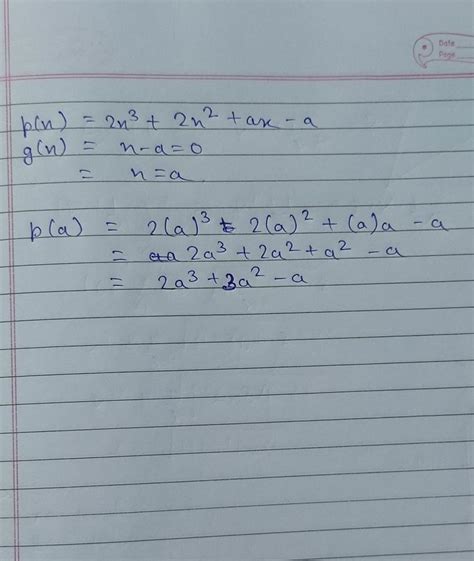 Date
Page
p(x) = 2x³ + 2x² + ax - a
g(x) = x - a = 0
= x = a
p(a) = 2(a)³ + 2(a)² + (a)a - a
= 2a³ + 2a² + a² - a
= 2a³ + 3a² - a